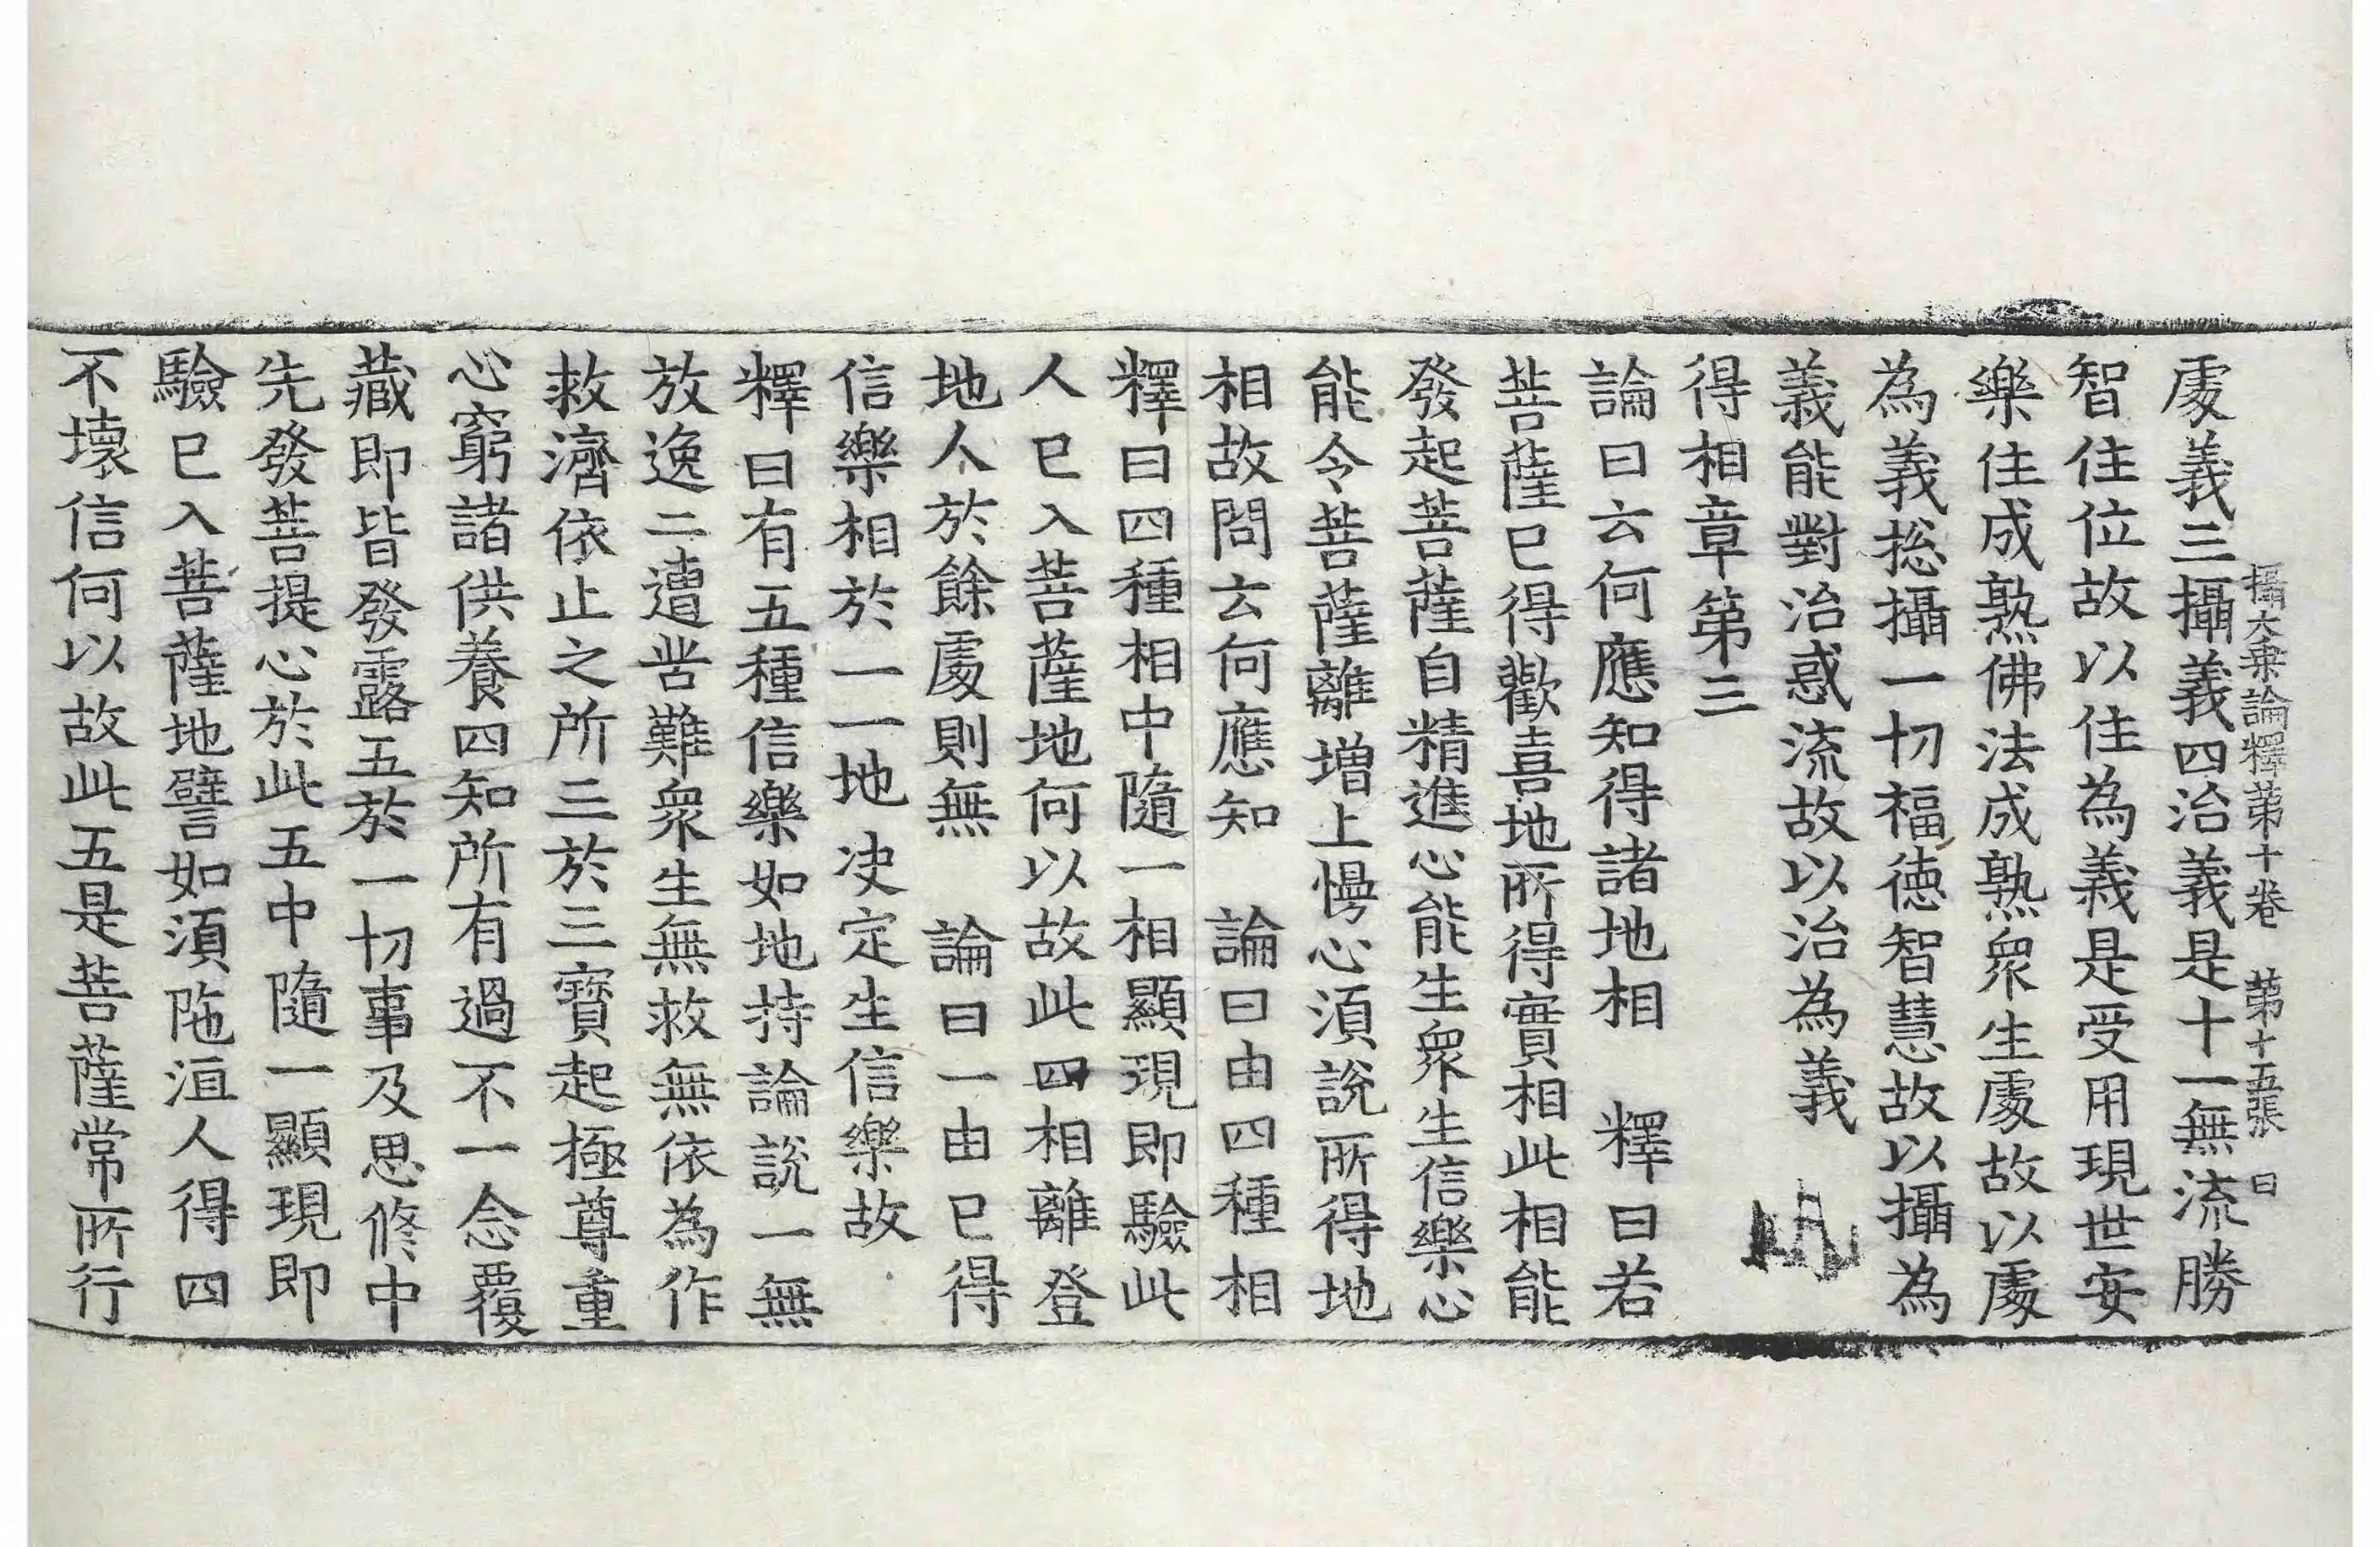 攝大乗論釋第十卷　第十五張　曰
處義三攝義四治義是十一無流勝
智住位故以住為義是受用現世安
樂住成熟佛法成熟衆生處故以處
為義捴攝一切福德智慧故以攝為
義能對治惑流故以治為義
得相章第三
論曰云何應知得諸地相　釋曰若
菩薩已得歡喜地所得實相此相能
發起菩薩自精進心能生衆生信樂心
能令菩薩離增上慢心湏說所得地
相故問云何應知　論曰由四種相
釋曰四種相中隨一相顯現即驗此
人已入菩薩地何以故此四相離登
地人於餘處則無　論曰一由已得
信樂相於一一地決定生信樂故
釋曰有五種信樂如地持論說一無
放逸二遭苦難衆生無救無依為作
救濟依止之所三於三寶起極尊重
心窮諸供養四知所有過不一念覆
藏即皆發露五於一切事及思修中
先發菩提心於此五中隨一顯現即
驗已入菩薩地譬如湏陁洹人得四
不壞信何以故此五是菩薩常所行